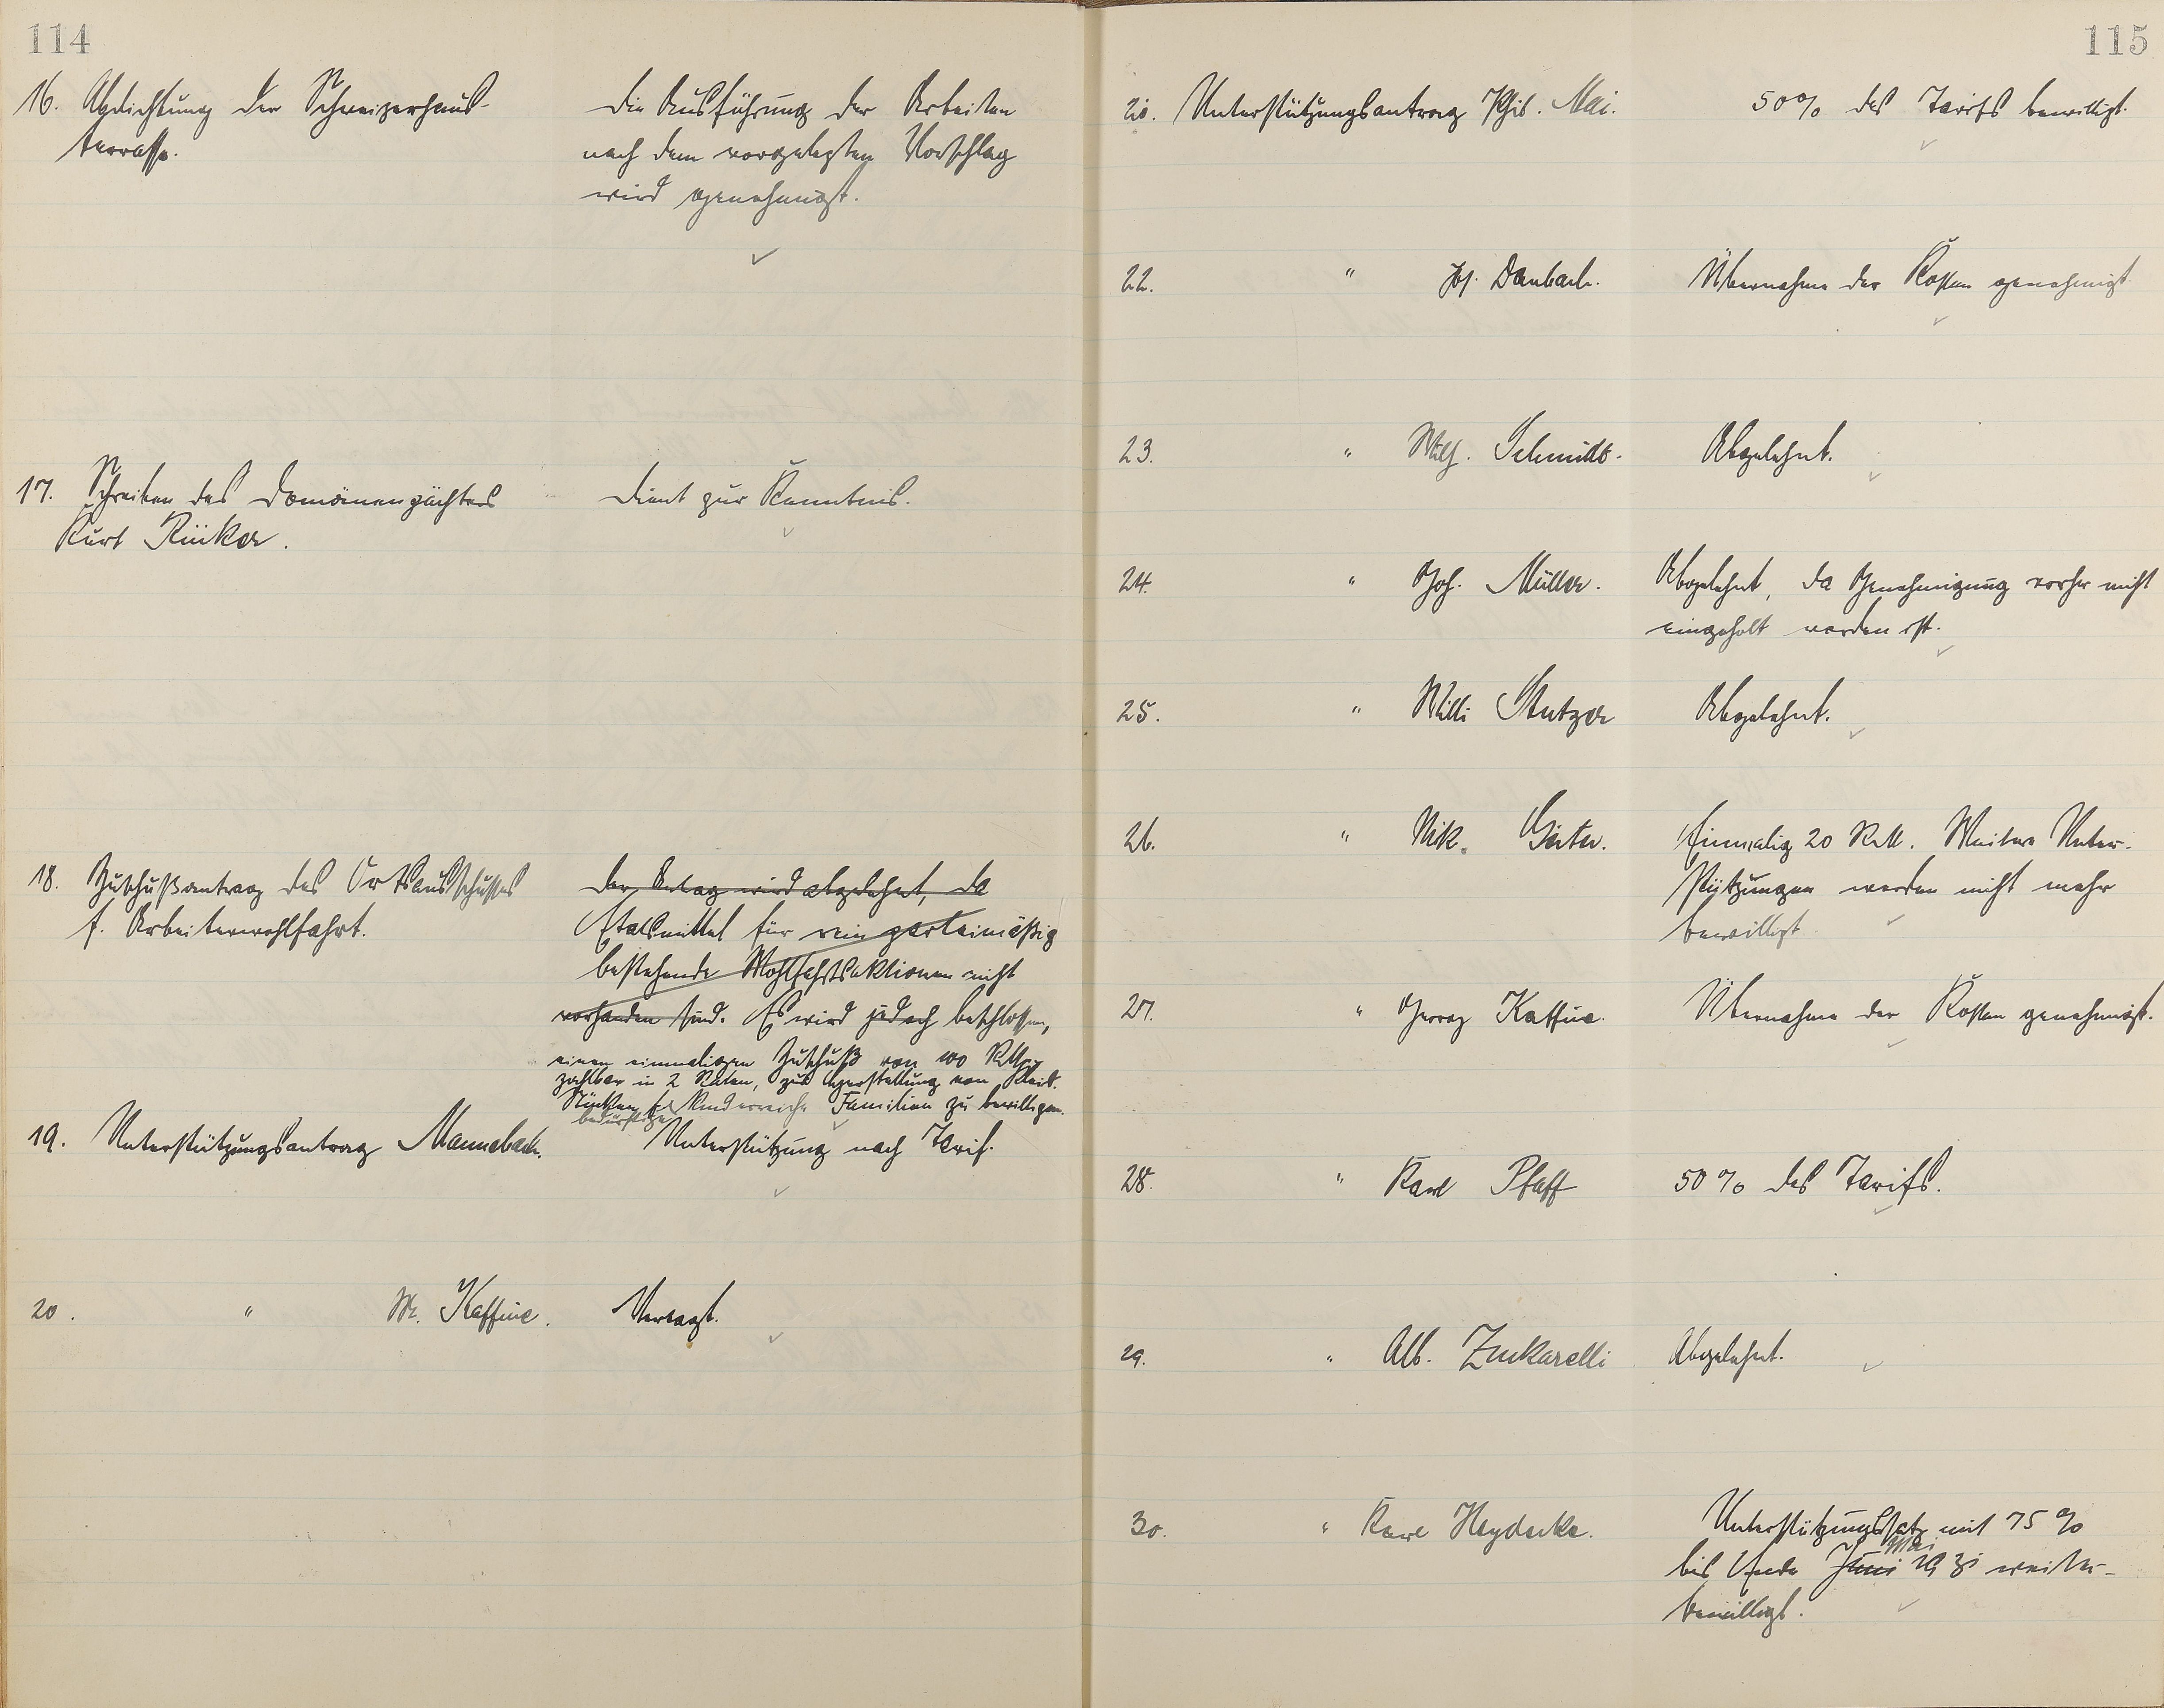 114
16. Abdichtung der Schweizerhaus-
terrasse.
Die Ausführung der Arbeiten
nach dem vorgelegten Vorschlag
wird genehmigt.
17. Schreiben des Domänenpächters
Kurt Rüker.
Dient zur Kenntnis.
18. Zuschußantrag des Ortsausschusses
f. Arbeiterwohlfahrt.
Der Antrag wird abgelehnt, da
Etatsmittel für rein parteimäßig
bestehende Wohlfahrtsaktionen nicht
vorhanden sind. Es wird jedoch beschlossen,
einen einmaligen Zuschuß von 100 RM,
zahlbar in 2 Raten, zur Herstellung von Kleid.
Stücken für kinderreiche Familien zu bewilligen.
bedürftige
19. Unterstützungsantrag Mannebach.
Unterstützung nach Tarif.
20. " W. Kaffine.
Vertagt.
115
21. Unterstützungsantrag Phil. Mai.
50% des Tarifs bewilligt.
22. " Jos. Danbach.
Übernahme der Kosten genehmigt
23. " Wilh. Schmidt.
Abgelehnt.
24. " Joh. Müller.
Abgelehnt, da Genehmigung vorher nicht
eingeholt worden ist.
25. " Willi Stutzer
Abgelehnt.
26. " Nik.
Einmalig 20 RM. Weitere Unter-
stützungen werden nicht mehr
bewilligt.
27. " Georg Kaffine.
Übernahme der Kosten genehmigt.
28. " Karl Pfaff
50% des Tarifs.
29. " Alb. Zuckarelli
Abgelehnt.
30. " Karl Heydecke.
Unterstützungssatz mit 75 %
Mai
bis Ende Juni 1931 weiter-
bewilligt.